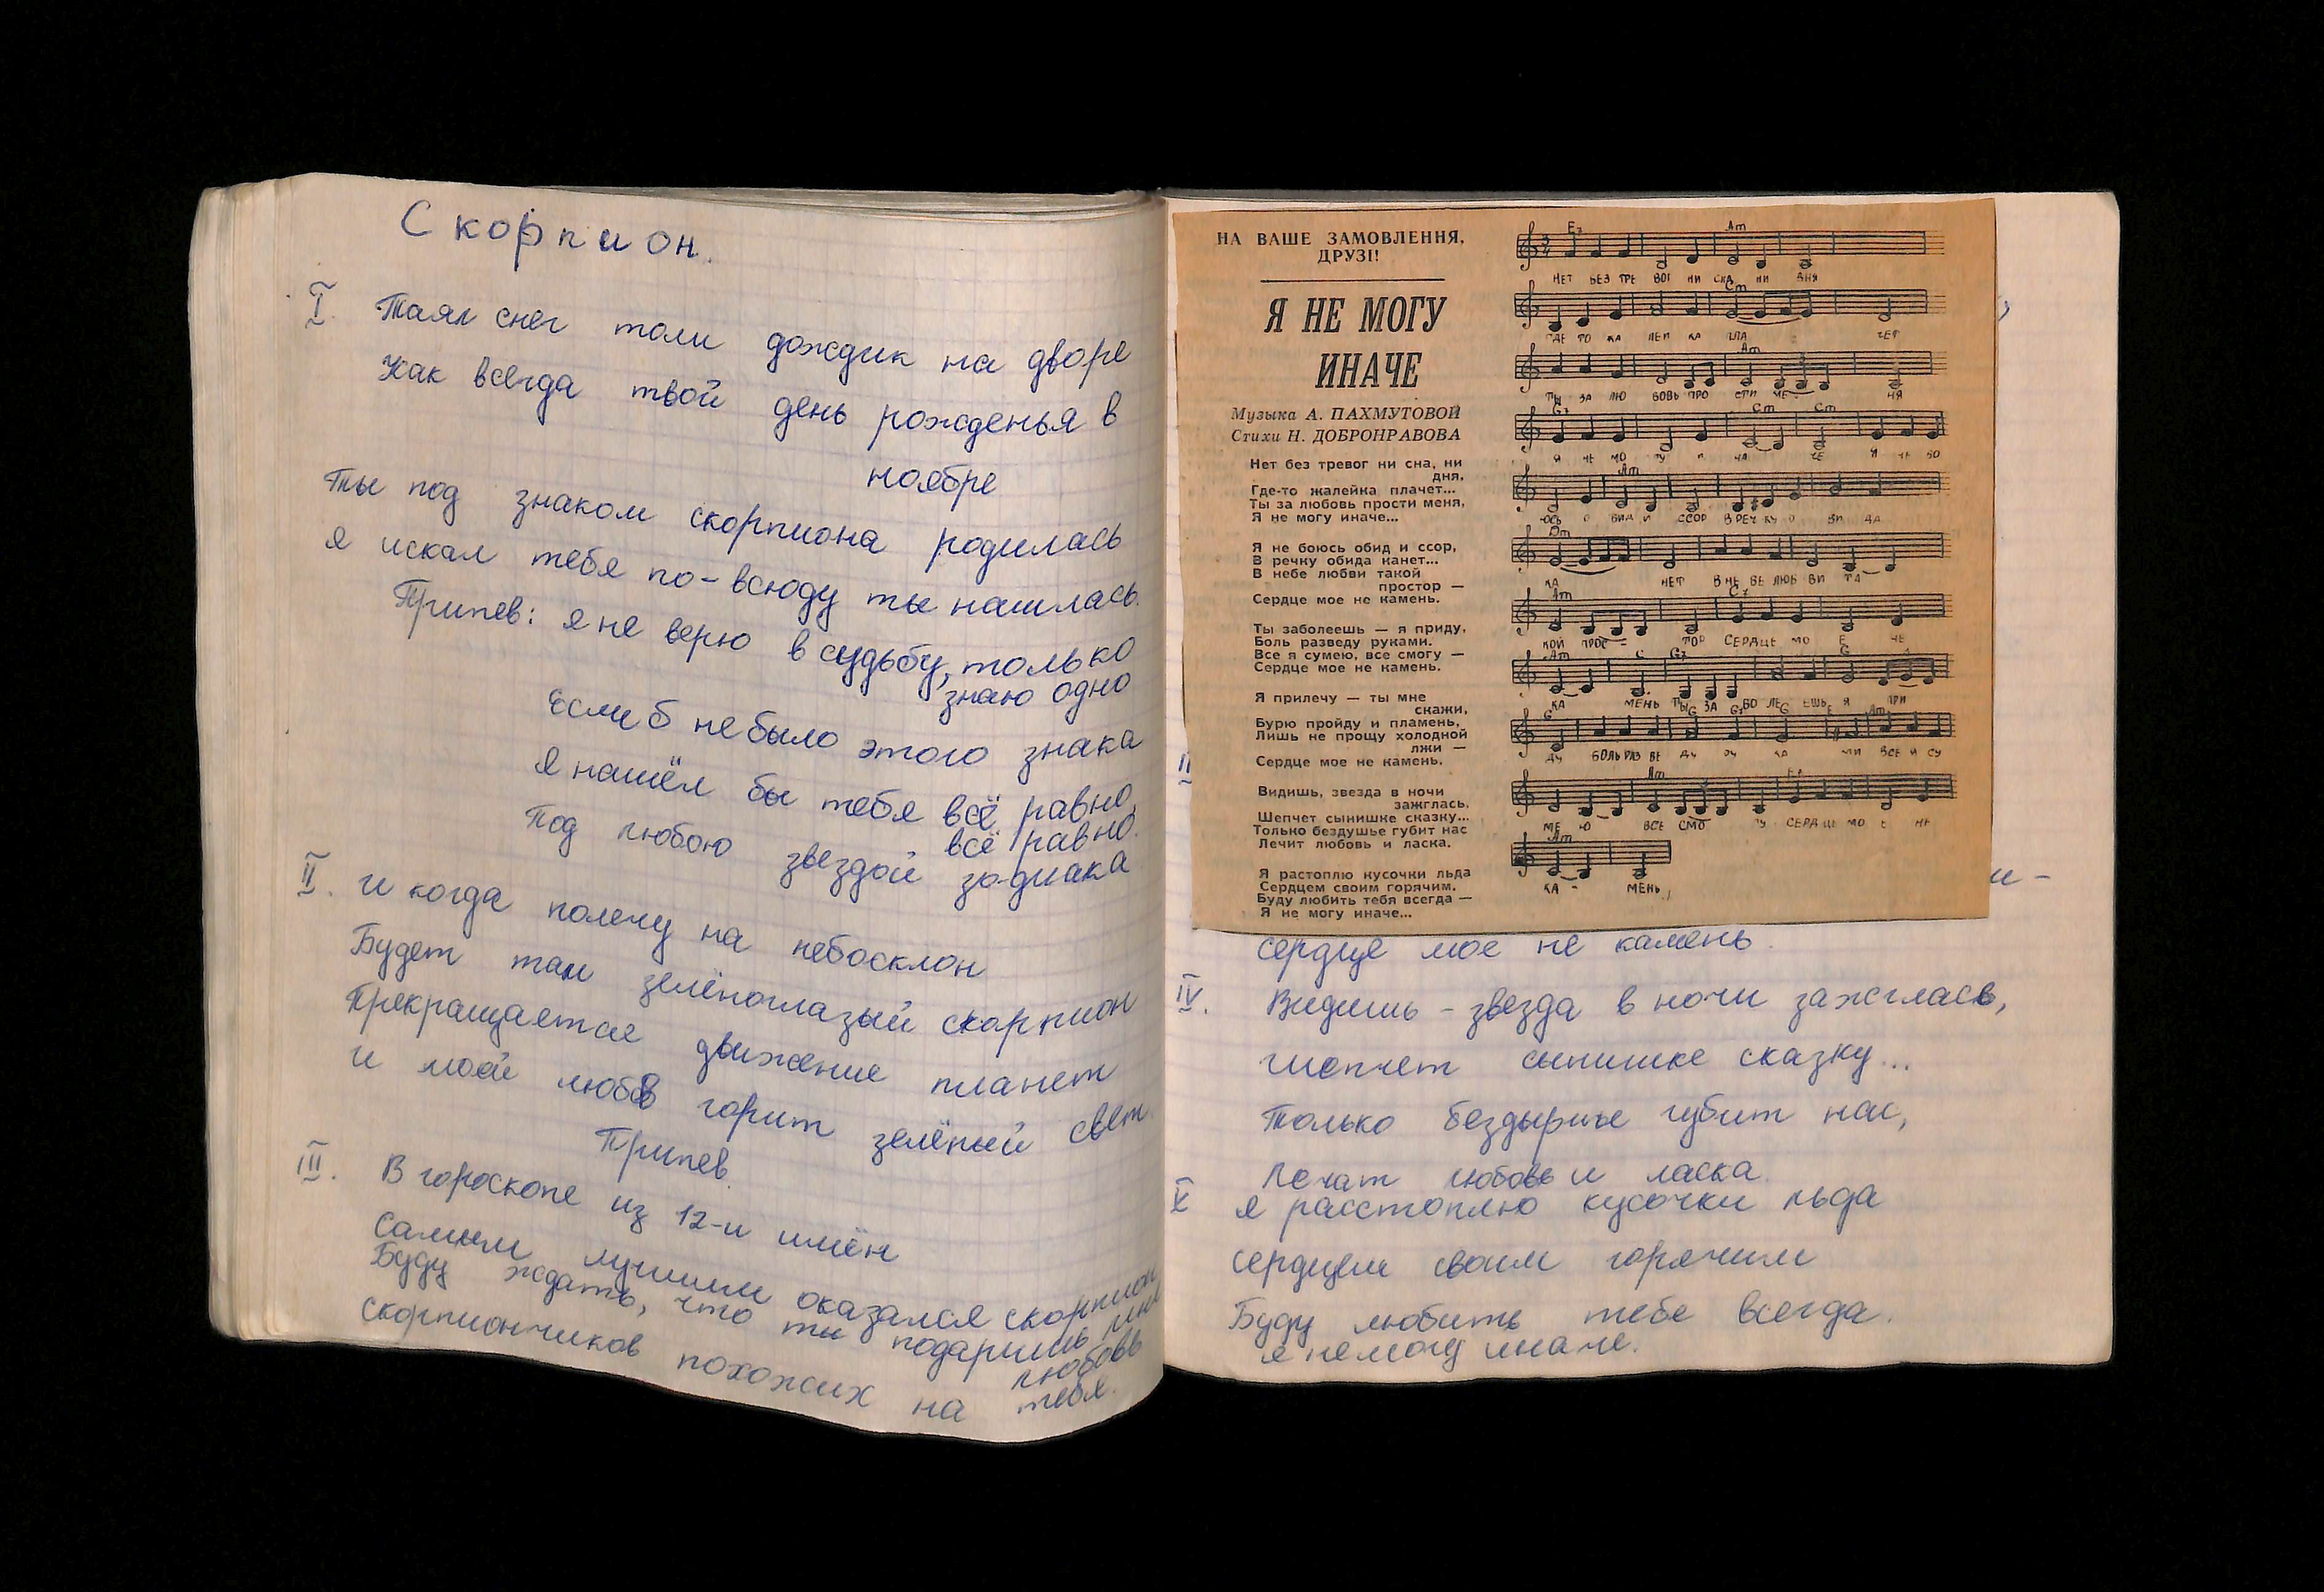 Скорпион.
I. Таял снег толи дождик на дворе
Как всегда твой день рожденья в
ноябре
Ты под знаком скорпиона родилась
я искал тебя по-всюду ты нашлась.
Припев: я не верю в судьбу, только
знаю одно
Если б не было этого знака
Я нашёл бы тебя всё равно,
всё равно.
Под любою звездой зо-диака
II. И когда полечу на небосклон
Будет там зелёноглазый скорпион
Прекращается движение планет
и моей любв горит зелёный свет.
Припев.
III. В гороскопе из 12-и имён
Самым лучшим оказался скорпион
Буду ждать, что ты подаришь мне
любовь
Скорпиончиков похожих на тебя.
НА ВАШЕ ЗАМОВЛЕННЯ,
ДРУЗІ!
Я НЕ МОГУ
ИНАЧЕ
Музыка А. ПАХМУТОВОЙ
Стихи Н. ДОБРОНРАВОВА
Нет без тревог ни сна, ни
дня,
Где-то жалейка плачет...
Ты за любовь прости меня,
Я не могу иначе...
Я не боюсь обид и ссор,
В речку обида канет...
В небе любви такой
простор —
Сердце мое не камень.
Ты заболеешь — я приду,
Боль разведу руками.
Все я сумею, все смогу —
Сердце мое не камень.
Я прилечу — ты мне
скажи,
Бурю пройду и пламень,
Лишь не прощу холодной
лжи —
Сердце мое не камень.
Видишь, звезда в ночи
зажглась,
Шепчет сынишке сказку...
Только бездушье губит нас
Лечит любовь и ласка.
Я растоплю кусочки льда
Сердцем своим горячим.
Буду любить тебя всегда —
Я не могу иначе...
E7 Am
НЕТ БЕЗ ТРЕ ВОГ НИ СНА НИ ДНЯ
Cm
ГДЕ ТО ЖА ЛЕЙ КА ПЛА ЧЕТ
Am
ТЫ ЗА ЛЮ БОВЬ ПРО СТИ МЕ - НЯ
G7 Cm Cm
Я НЕ МО ГУ И НА ЧЕ Я НЕ БО
Am
ЮСЬ О БИД И ССОР В РЕЧ КУ О БИ ДА
Dm
КА НЕТ В НЕ БЕ ЛЮБ ВИ ТА
Am C7
КОЙ ПРОС - ТОР СЕРДЦЕ МО Е НЕ
Am C G7 G
КА МЕНЬ ТЫ ЗА БО ЛЕ ЕШЬ Я ПРИ
G G G7 G E Am
ДУ БОЛЬ РАЗ ВЕ ДУ РУ КА МИ ВСЕ Я СУ
Am E7
МЕ Ю ВСЕ СМО ГУ СЕРДЦЕ МО Е НЕ
Am
КА - МЕНЬ
II
и-
сердце мое не камень.
IV. Видишь - звезда в ночи зажглась,
шепчет сынишке сказку...
Только бездырше губит нас,
Лечат любовь и ласка.
V я расстоплю кусочки льда
сердцем своим горячим
Буду любить тебе всегда.
я не могу иначе.